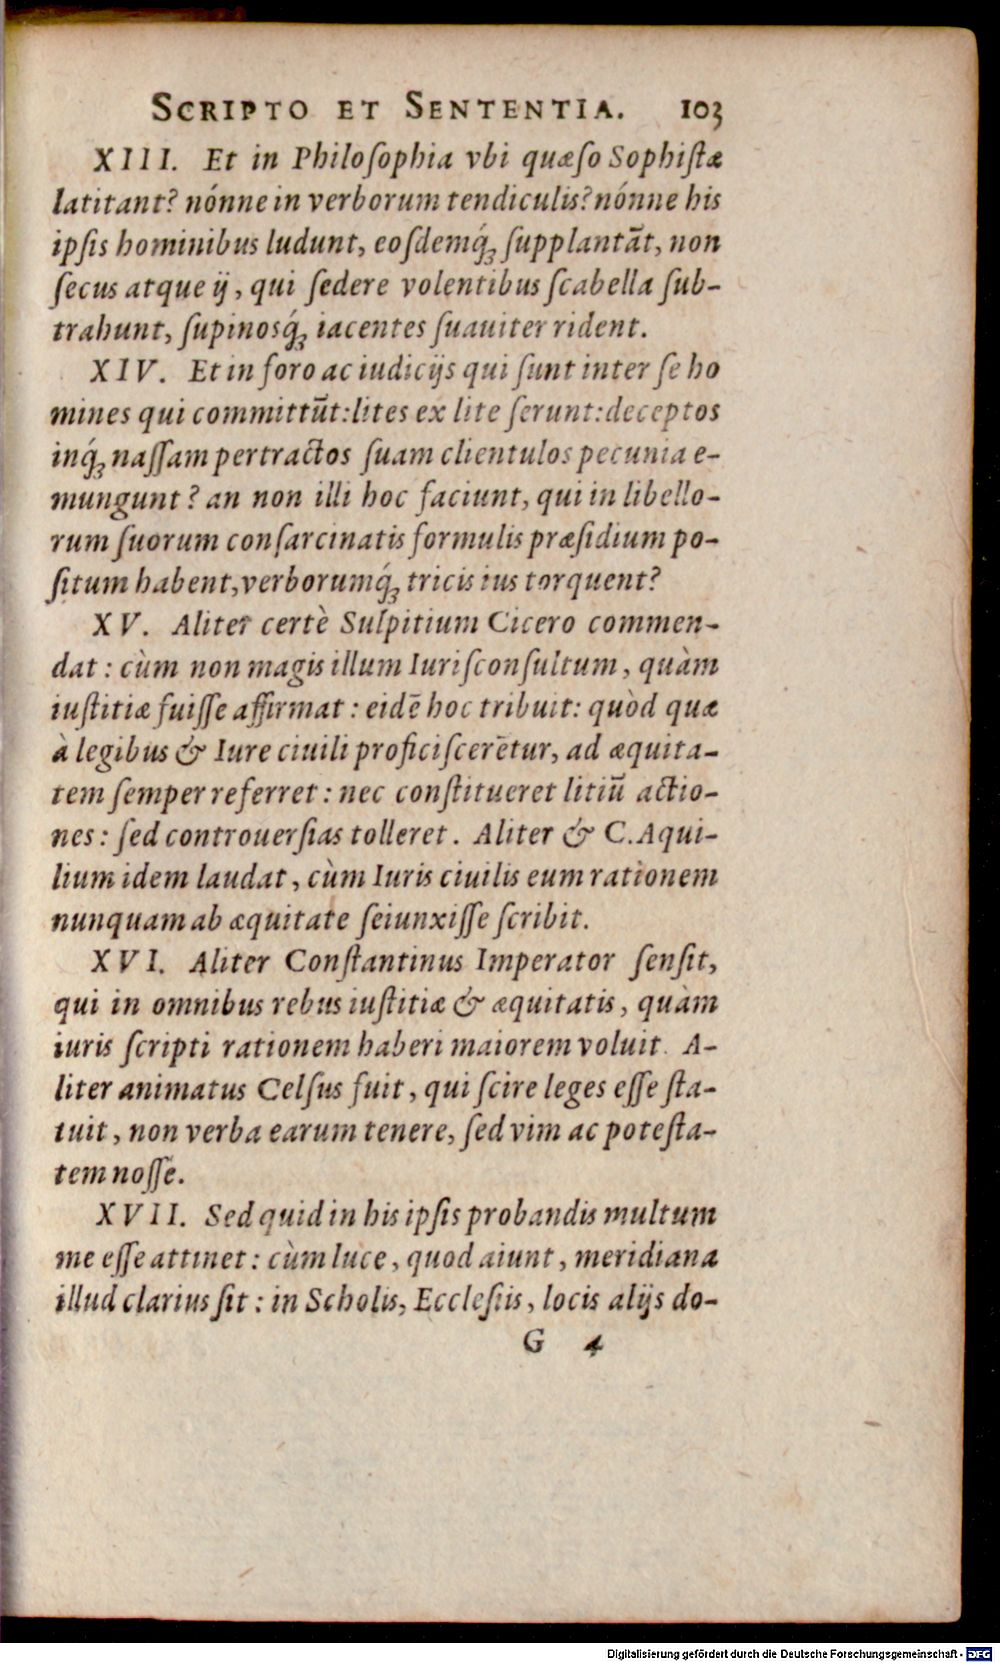 SCRIPTO ET SENTENTIA. 103
XIII. Et in Philoſophia vbi quæſo Sophiſtæ
latitant? nónne in verborum tendiculis? nónne his
ipſis hominibus ludunt, eoſdemq́ꝫ ſupplantãt, non
ſecus atque ij, qui ſedere volentibus ſcabella ſub-
trahunt, ſupinosq́ꝫ iacentes ſuauiter rident.
XIV. Et in foro ac iudicijs qui ſunt inter ſe ho
mines qui committũt: lites ex lite ſerunt: deceptos
inq́ꝫ naſſam pertractos ſuam clientulos pecunia e-
mungunt? an non illi hoc faciunt, qui in libello-
rum ſuorum conſarcinatis formulis præſidium po-
ſitum habent, verborumq́ꝫ tricis ius torquent?
XV. Aliter certè Sulpitium Cicero commen-
dat: cùm non magis illum Iuriſconſultum, quàm
iuſtitiæ fuiſſe affirmat: eidẽ hoc tribuit: quòd quæ
à legibus & Iure ciuili proficiſcerẽtur, ad æquita-
tem ſemper referret: nec conſtitueret litiũ actio-
nes: ſed controuerſias tolleret. Aliter & C. Aqui-
lium idem laudat, cùm Iuris ciuilis eum rationem
nunquam ab æquitate ſeiunxiſſe ſcribit.
XVI. Aliter Conſtantinus Imperator ſenſit,
qui in omnibus rebus iuſtitiæ & æquitatis, quàm
iuris ſcripti rationem haberi maiorem voluit. A-
liter animatus Celſus fuit, qui ſcire leges eſſe ſta-
tuit, non verba earum tenere, ſed vim ac poteſta-
tem noſſe.
XVII. Sed quid in his ipſis probandis multum
me eſſe attinet: cùm luce, quod aiunt, meridiana
illud clarius ſit: in Scholis, Eccleſiis, locis alijs do-
G 4
Digitalisierung gefördert durch die Deutsche Forschungsgemeinschaft - DFG